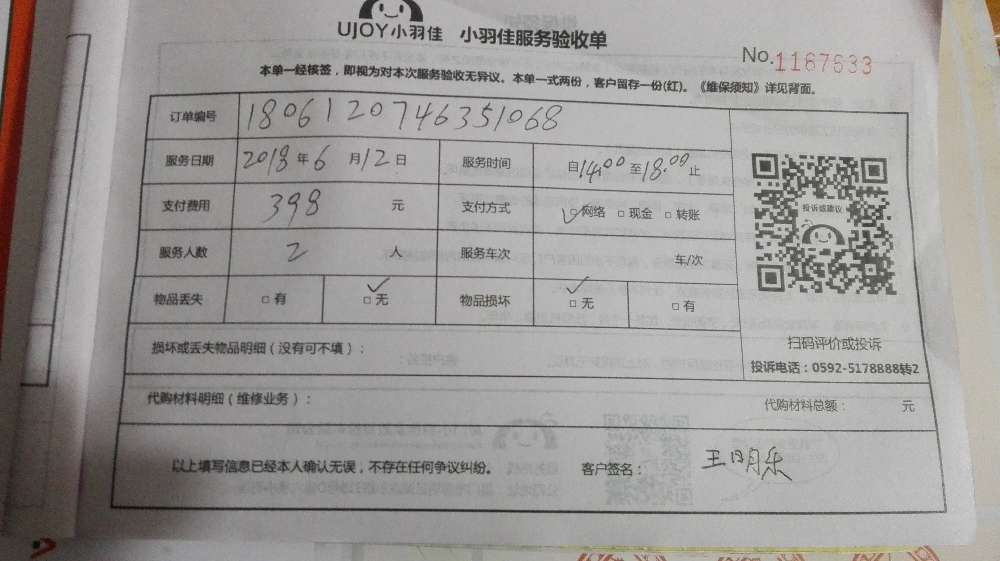 UJOY小羽佳 小羽佳服务验收单
No.1167633
本单一经核签，即视为对本次服务验收无异议。本单一式两份，客户留存一份(红)。《维保须知》详见背面。
订单编号 1806120746351068
服务日期 2018年6月12日 服务时间 自14:00至18:00止
支付费用 398 元 支付方式 ☑网络 □现金 □转账
投诉或建议
服务人数 2 人 服务车次 车/次
物品丢失 □有 ☑无 物品损坏 ☑无 □有
损坏或丢失物品明细（没有可不填）：
扫码评价或投诉
投诉电话：0592-5178888转2
代购材料明细（维修业务）： 代购材料总额： 元
以上填写信息已经本人确认无误，不存在任何争议纠纷。 客户签名： 王明乐